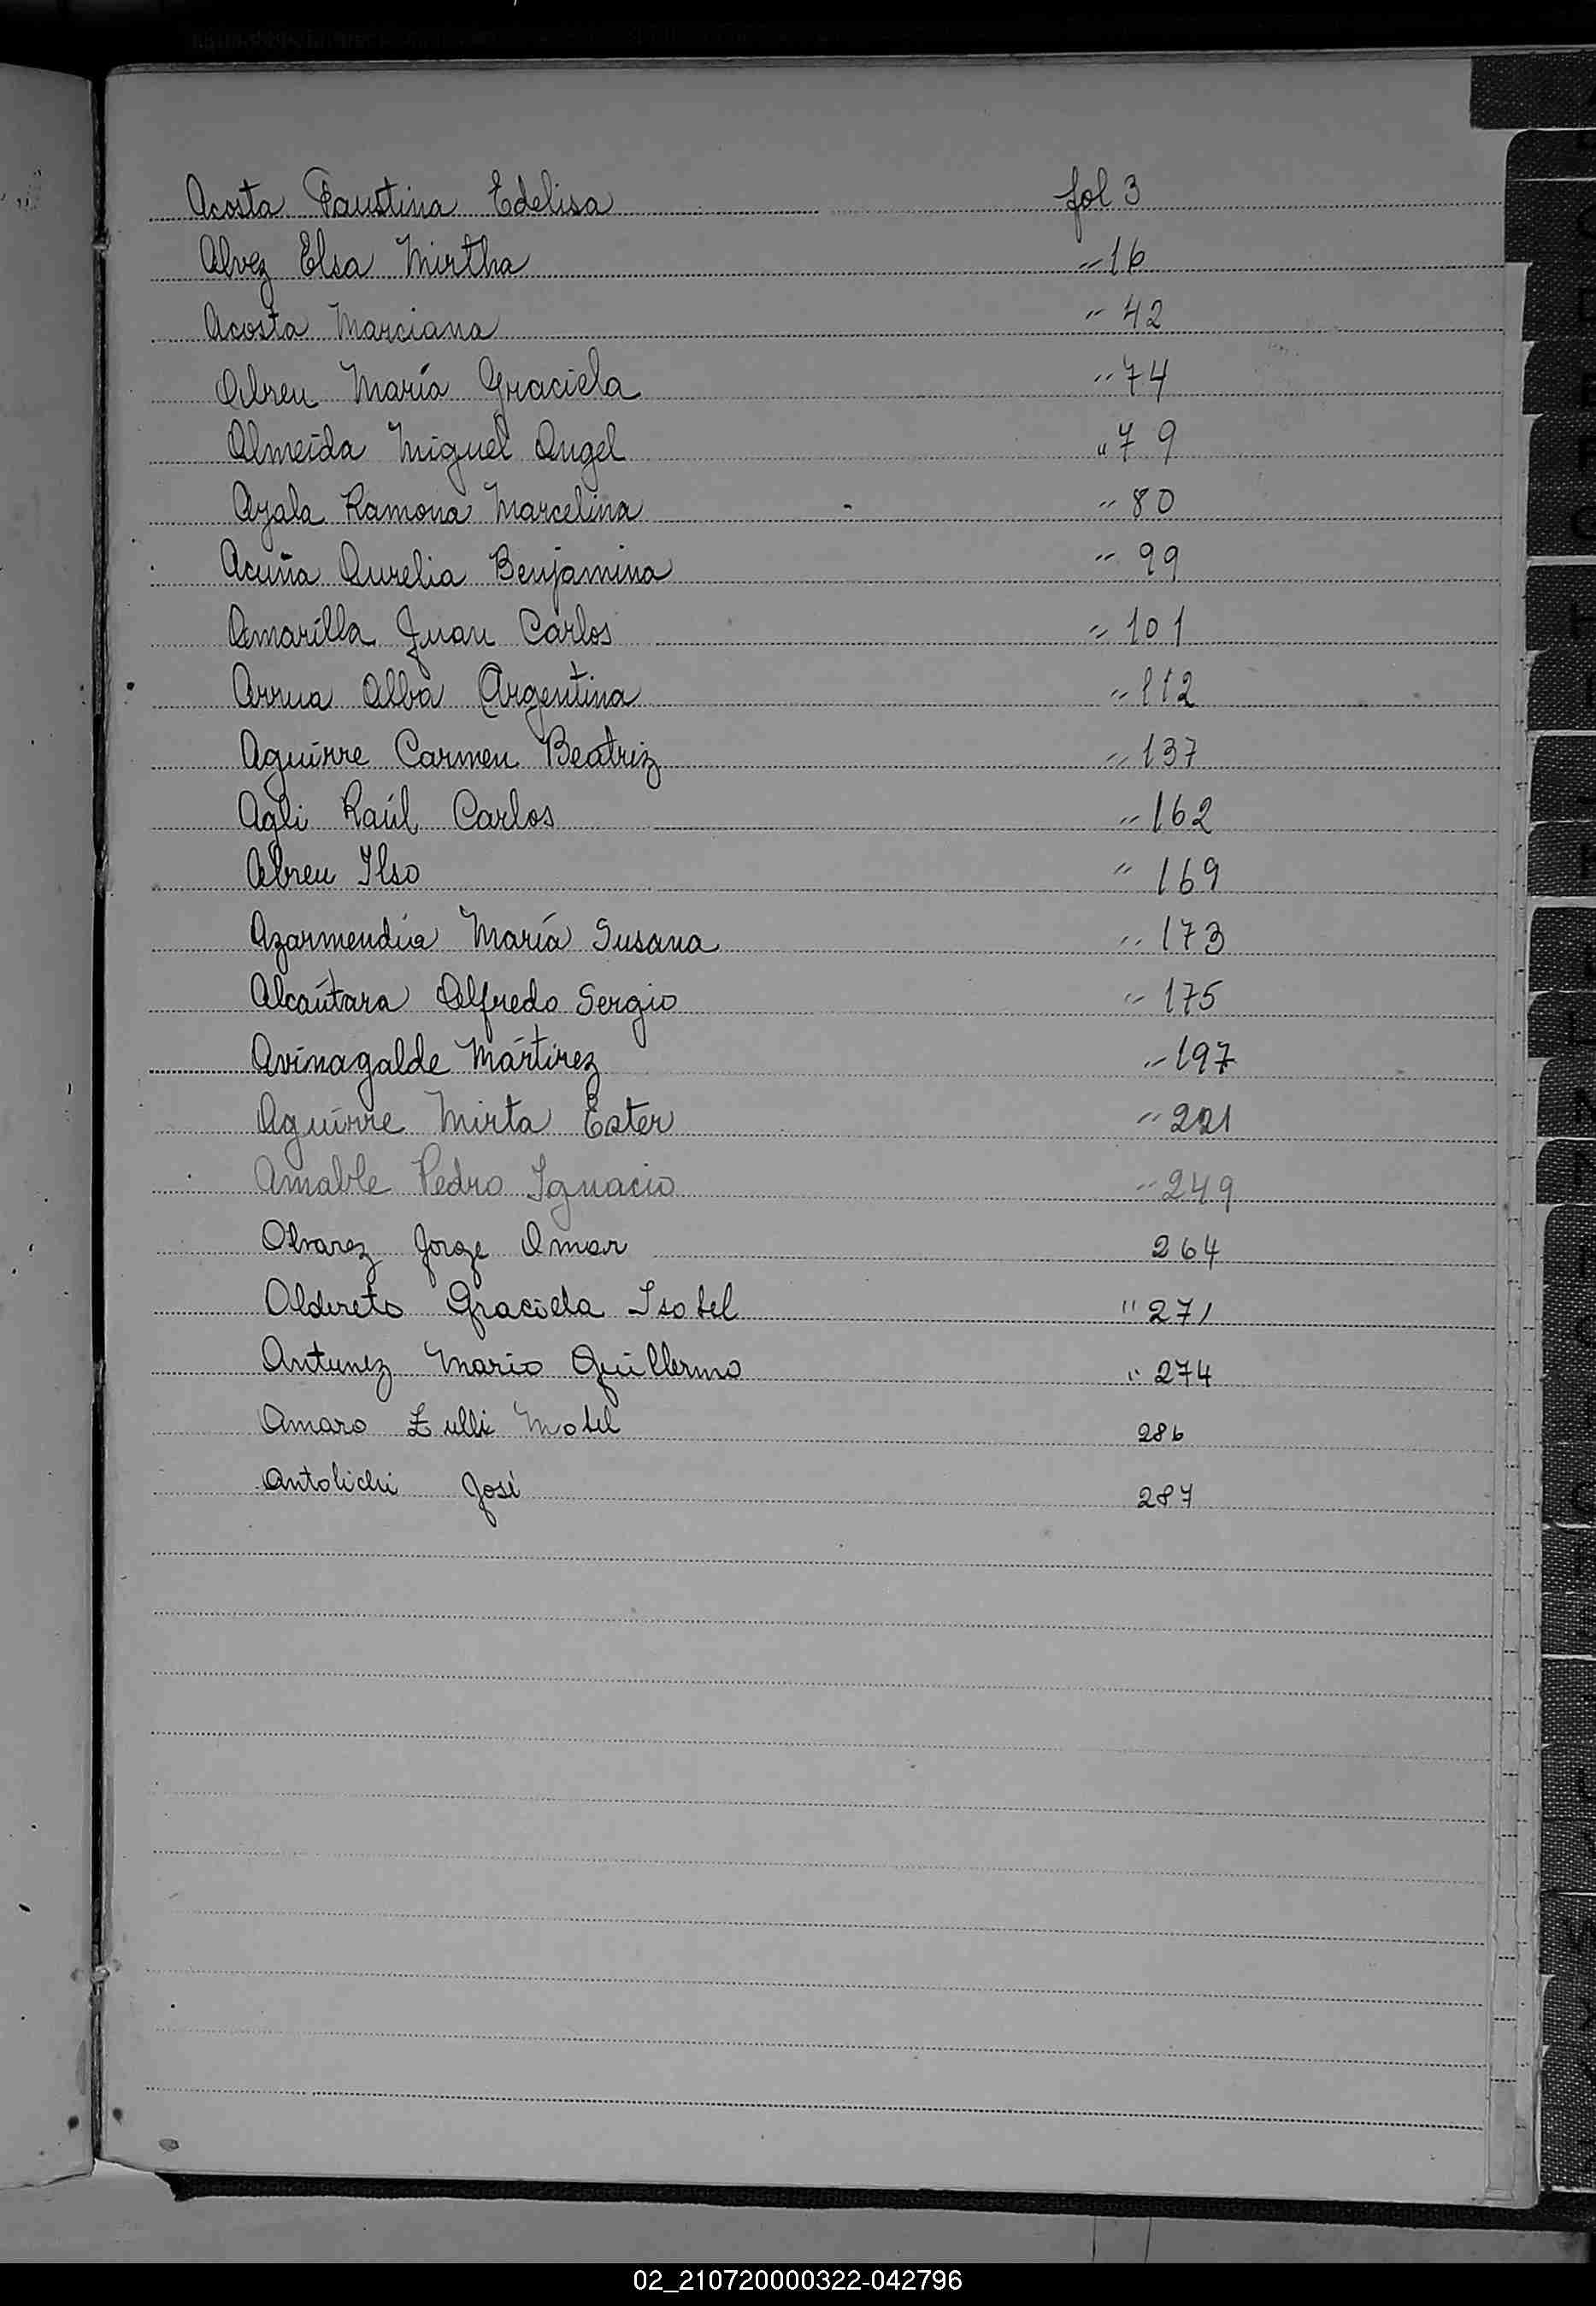 Acosta Faustina Edelisa fol 3
Alvez Elsa Mirtha " 16
Acosta Marciana " 42
Abreu María Graciela " 74
Almeida Miguel Angel " 79
Ayala Ramona Marcelina " 80
Acuña Aurelia Benjamina " 99
Amarilla Juan Carlos " 101
Arrua Alba Argentina " 112
Aguirre Carmen Beatriz " 137
Agli Raúl Carlos " 162
Abreu Ilso " 169
Azarmendia María Susana " 173
Alcántara Alfredo Sergio " 175
Avinagalde Mártirez " 197
Aguirre Mirta Ester " 221
Amable Pedro Ignacio " 249
Alvarez Jorge Omar 264
Aldereto Graciela Isabel " 271
Antunez Mario Guillermo " 274
Amaro Zulli Mabel 286
Antolichi José 287
02_210720000322-042796